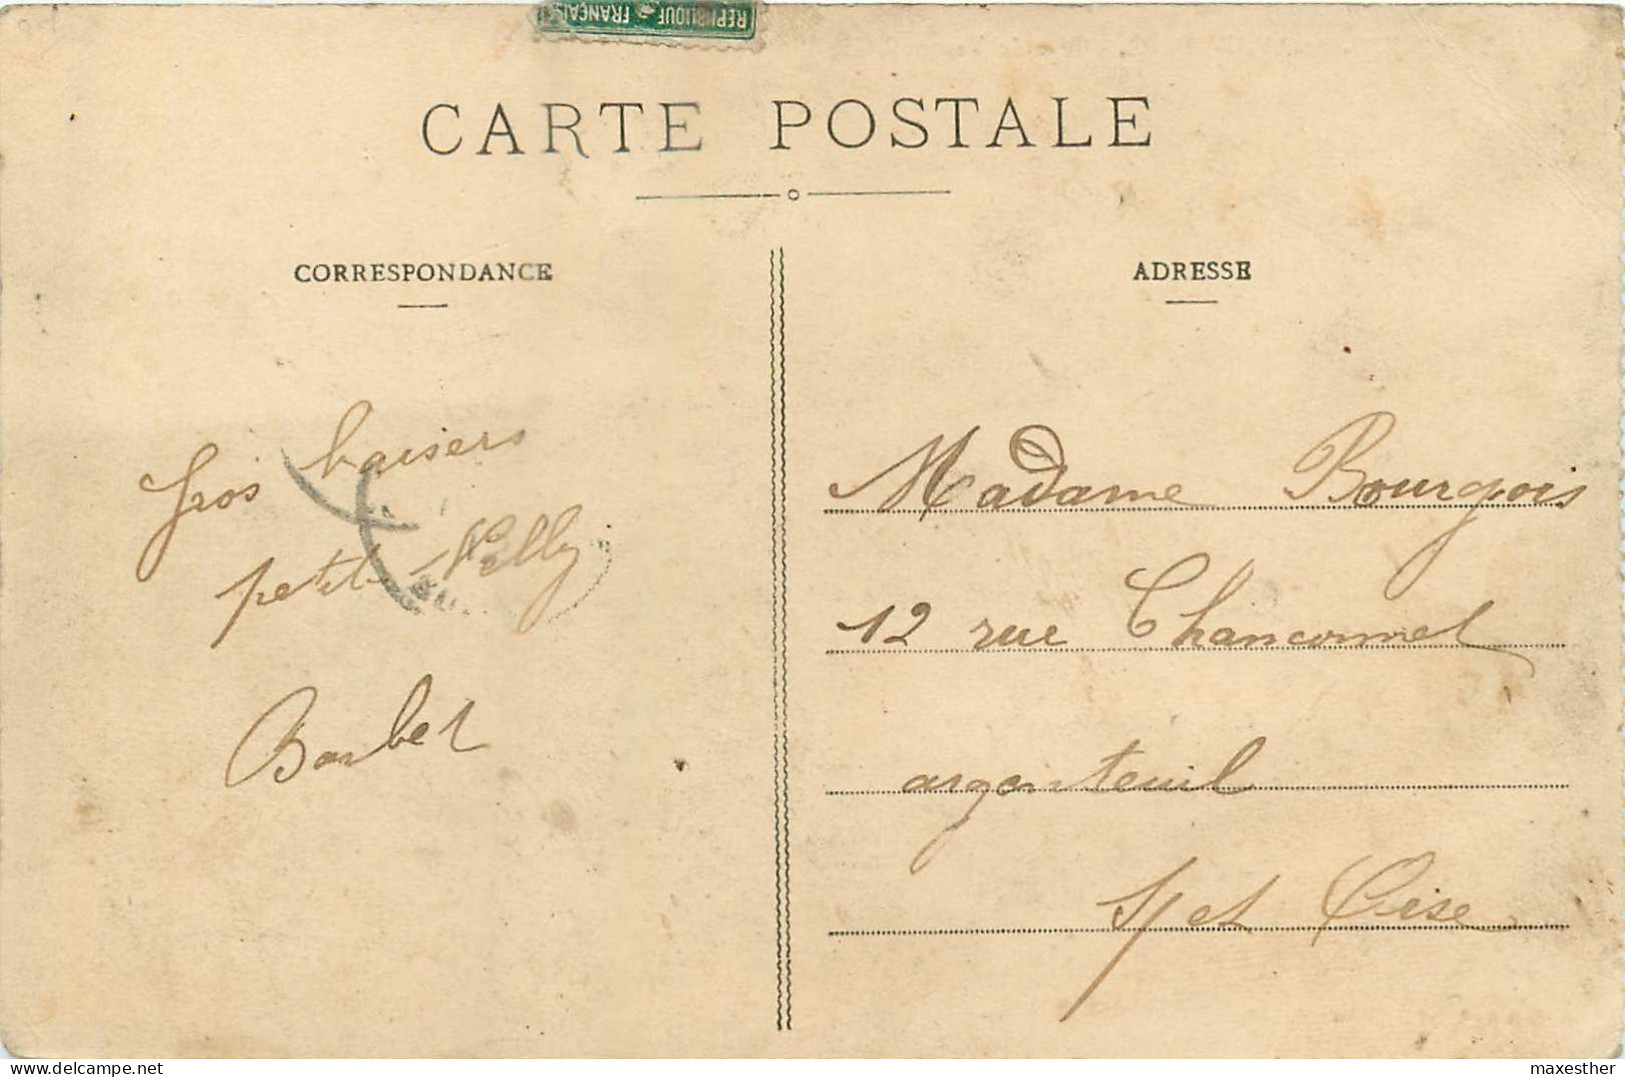 REPUBLIQUE FRANÇAISE
CARTE POSTALE
CORRESPONDANCE
Gros baisers
petite Nelly
Barbet
ADRESSE
Madame Bourgois
12 rue Chanconnet
argenteuil
S/ et Oise
delcampe.net
maxesther